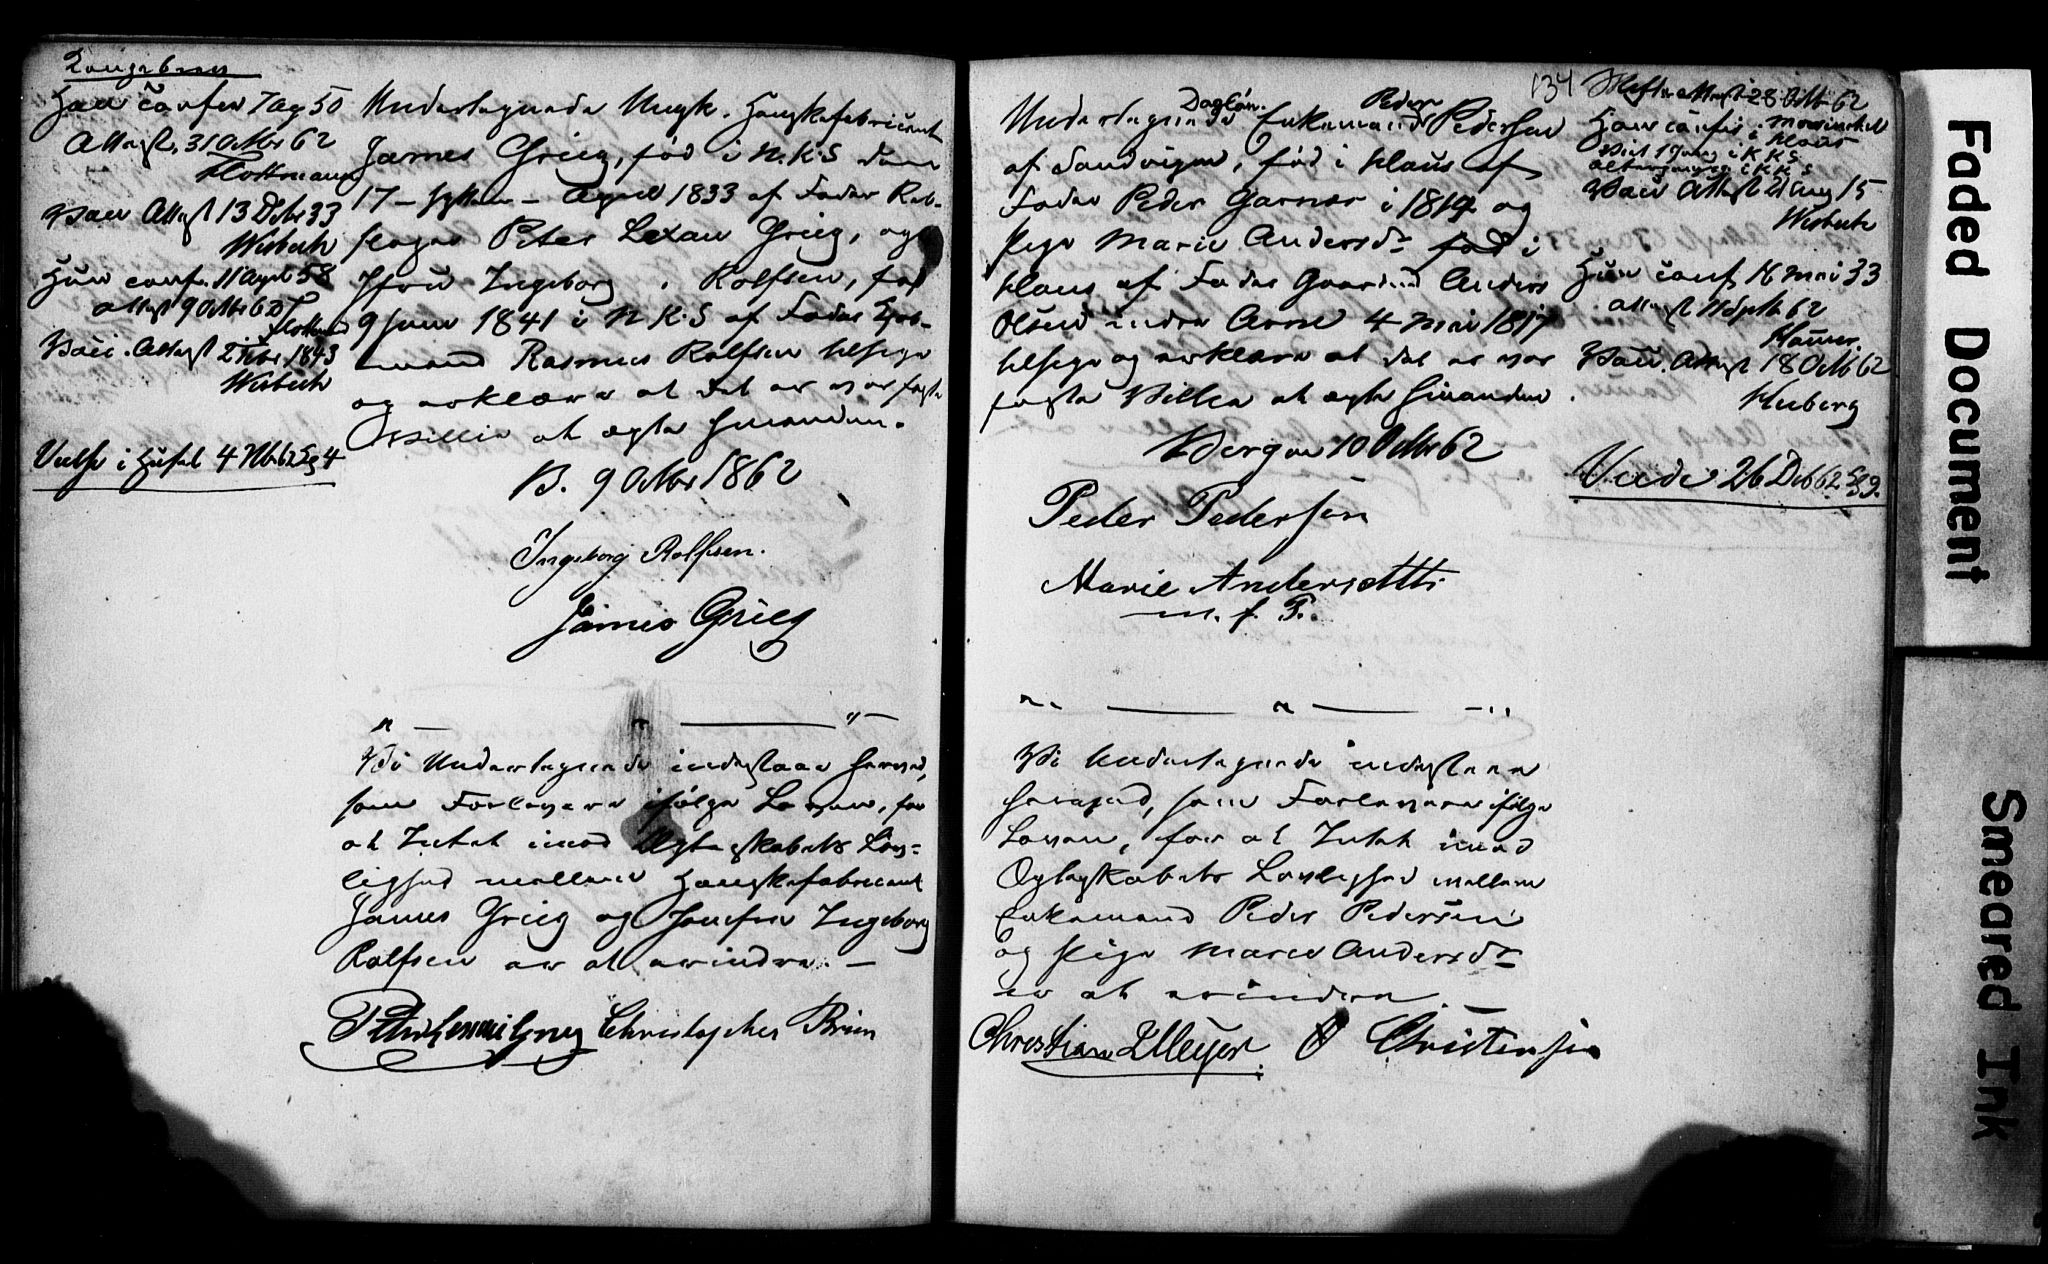 Han conf. 7 Ag 50
Attest. 31 Octbr 62
Vacc Attest 13 Debr 33
Wisbech
Hun conf. 11 Apr 58
Attest 9 Octbr 62
Vacc. Attest 1843
Wisbech
Vielse i Huset 4 Nb 62 Sg 4
Undertegnede Ungk. Handskefabricant
James Grieg, fød i N.K.S den
17 April 1833 af Fader
Peter Lexau Grieg, og
Jfru Ingeborg Rolfsen, fød
9 Juni 1841 i N.K.S af Fader
Rasmus Rolfsen tilsige
og erklære at det er vor faste
Villie at ægte hinanden.
B. 9 Octbr 1862
Ingeborg Rolfsen.
James Grieg
Vi Undertegnede indestaae herved,
som Forlovere ifølge Loven, for
at Intet imod Ægteskabets Lov-
lighed mellem Handskefabricant
James Grieg og Jomfru Ingeborg
Rolfsen er at erindre. —
Christopher Brun
134
Dagløn. Peder
Undertegnede Enkemand Pedersen
af Sandvigen, fød i Klaus af
Fader Peder i 1814 og
Pige Marie Andersdr fød i
Klaus af Fader Gaardmd Anders
Olsen 4 Mai 1817
tilsige og erklære at det er vor
faste Villie at ægte hinanden.
Bergen 10 Octbr 62
Peder Pedersen
Marie Andersdttr
m. f. P.
Vi Undertegnede indestaae
herved, som Forlovere ifølge
Loven, for at Intet imod
Ægteskabets Lovlighed mellem
Enkemand Peder Pedersen
og Pige Marie Andersdr
er at erindre. —
Christian Meyer O Christensen
Attest 28 Octb 62
Han conf. i
Klaus
i K.K.S
Vacc Attest 21 Aug 15
Wisbech
Hun conf 16 Mai 33
Attest Septb 62
Vacc. Attest 18 Octb 62
Viede 26 Deb 62 Sg 9.
Faded Document
Smeared Ink